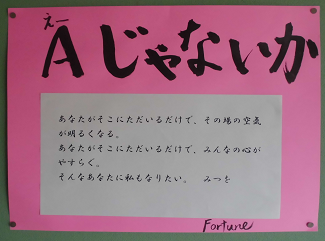 えー
Aじゃないか
あなたがそこにただいるだけで、その場の空気
が明るくなる。
あなたがそこにただいるだけで、みんなの心が
やすらぐ。
そんなあなたに私もなりたい。　みつを
Fortune